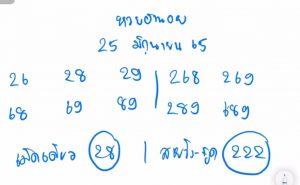 หวยฮานอย
25 มิถุนายน 65
26 28 29 | 268 269
68 69 89 289 689
เม็ดเดียว 28 | 222